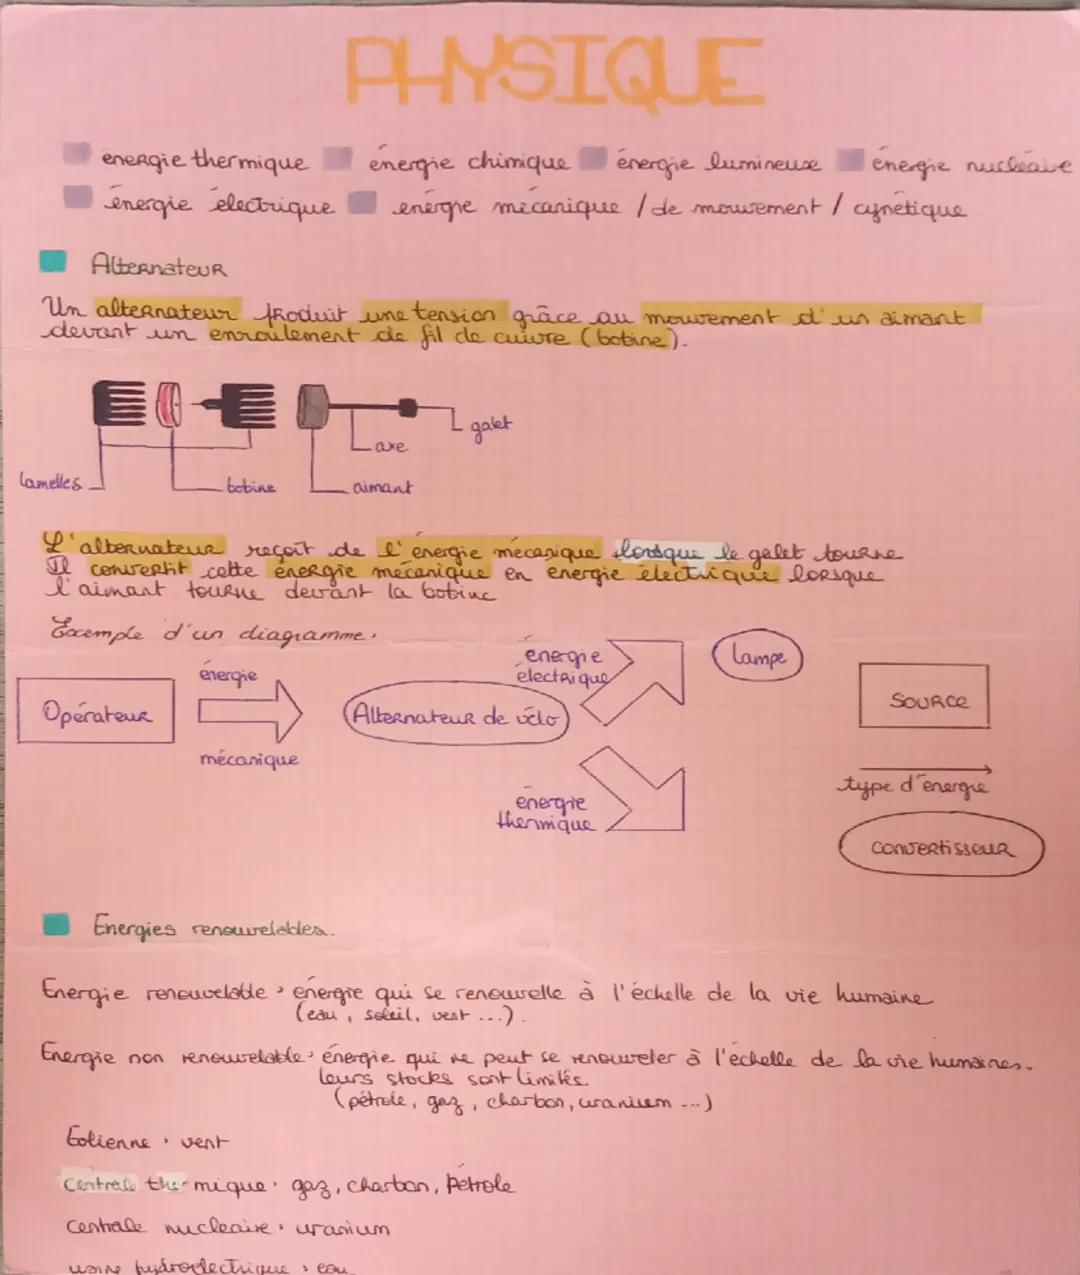 PHYSIQUE
énergie thermique énergie chimique énergie lumineuse énergie nucléaire
énergie électrique énergie mécanique / de mouvement / cynétique
Alternateur
Un alternateur produit une tension grâce au mouvement d'un aimant
devant un enroulement de fil de cuivre (bobine).
galet
axe
lamelles bobine aimant
L'alternateur reçoit de l'énergie mécanique lorsque le galet tourne
Il convertit cette énergie mécanique en énergie électrique lorsque
l'aimant tourne devant la bobine
Exemple d'un diagramme :
énergie
mécanique
Opérateur
Alternateur de vélo
énergie
électrique
Lampe
énergie
thermique
Source
type d'énergie
convertisseur
Energies renouvelables.
Energie renouvelable : énergie qui se renouvelle à l'échelle de la vie humaine
(eau, soleil, vent ...).
Energie non renouvelable : énergie qui ne peut se renouveler à l'échelle de la vie humaines.
leurs stocks sont limités.
(pétrole, gaz, charbon, uranium ...)
Eolienne : vent
Centrale thermique : gaz, charbon, Pétrole
Centrale nucleaire : uranium
usine hydroelectrique : eau